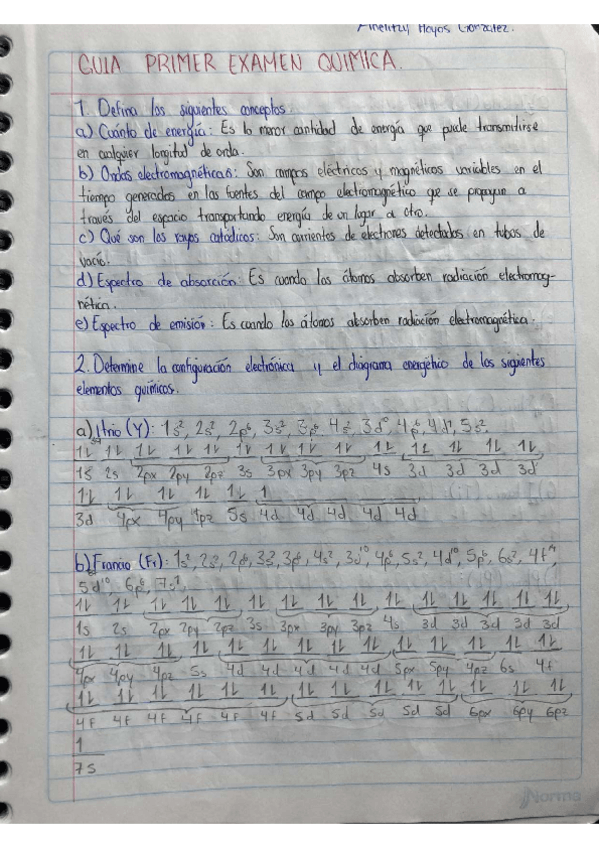 Hoyos González.
GUIA PRIMER EXAMEN QUIMICA.
1. Defina los siguientes conceptos.
a) Cuánto de energía: Es la menor cantidad de energía que puede transmitirse
en cualquier longitud de onda.
b) Ondas electromagnéticas: Son campos eléctricos y magnéticos variables en el
tiempo generados en las fuentes del campo electromagnético que se propagan a
través del espacio transportando energía de un lugar a otro.
c) Qué son los rayos catódicos: Son corrientes de electrones detectados en tubos de
vacío.
d) Espectro de absorción: Es cuando los átomos absorben radiación electromag-
nética.
e) Espectro de emisión: Es cuando los átomos absorben radiación electromagnética.
2. Determine la configuración electrónica y el diagrama energético de los siguientes
elementos químicos.
a) Itrio (Y): 1s², 2s², 2p⁶, 3s², 3p⁶, 4s², 3d¹⁰, 4p⁶, 4d¹, 5s².
1L 1L 1L 1L 1L 1L 1L 1L 1L 1L 1L 1L 1L 1L
1s 2s 2px 2py 2pz 3s 3px 3py 3pz 4s 3d 3d 3d 3d
1L 1L 1L 1L 1L 1
3d 4px 4py 4pz 5s 4d 4d 4d 4d 4d
b) Francio (Fr): 1s², 2s², 2p⁶, 3s², 3p⁶, 4s², 3d¹⁰, 4p⁶, 5s², 4d¹⁰, 5p⁶, 6s², 4f¹⁴,
5d¹⁰, 6p⁶, 7s¹.
1L 1L 1L 1L 1L 1L 1L 1L 1L 1L 1L 1L 1L 1L 1L
1s 2s 2px 2py 2pz 3s 3px 3py 3pz 4s 3d 3d 3d 3d 3d
1L 1L 1L 1L 1L 1L 1L 1L 1L 1L 1L 1L 1L 1L
4px 4py 4pz 5s 4d 4d 4d 4d 4d 5px 5py 4pz 6s 4f
1L 1L 1L 1L 1L 1L 1L 1L 1L 1L 1L 1L 1L 1L
4f 4f 4f 4f 4f 4f 5d 5d 5d 5d 5d 6px 6py 6pz
1
7s
Norma